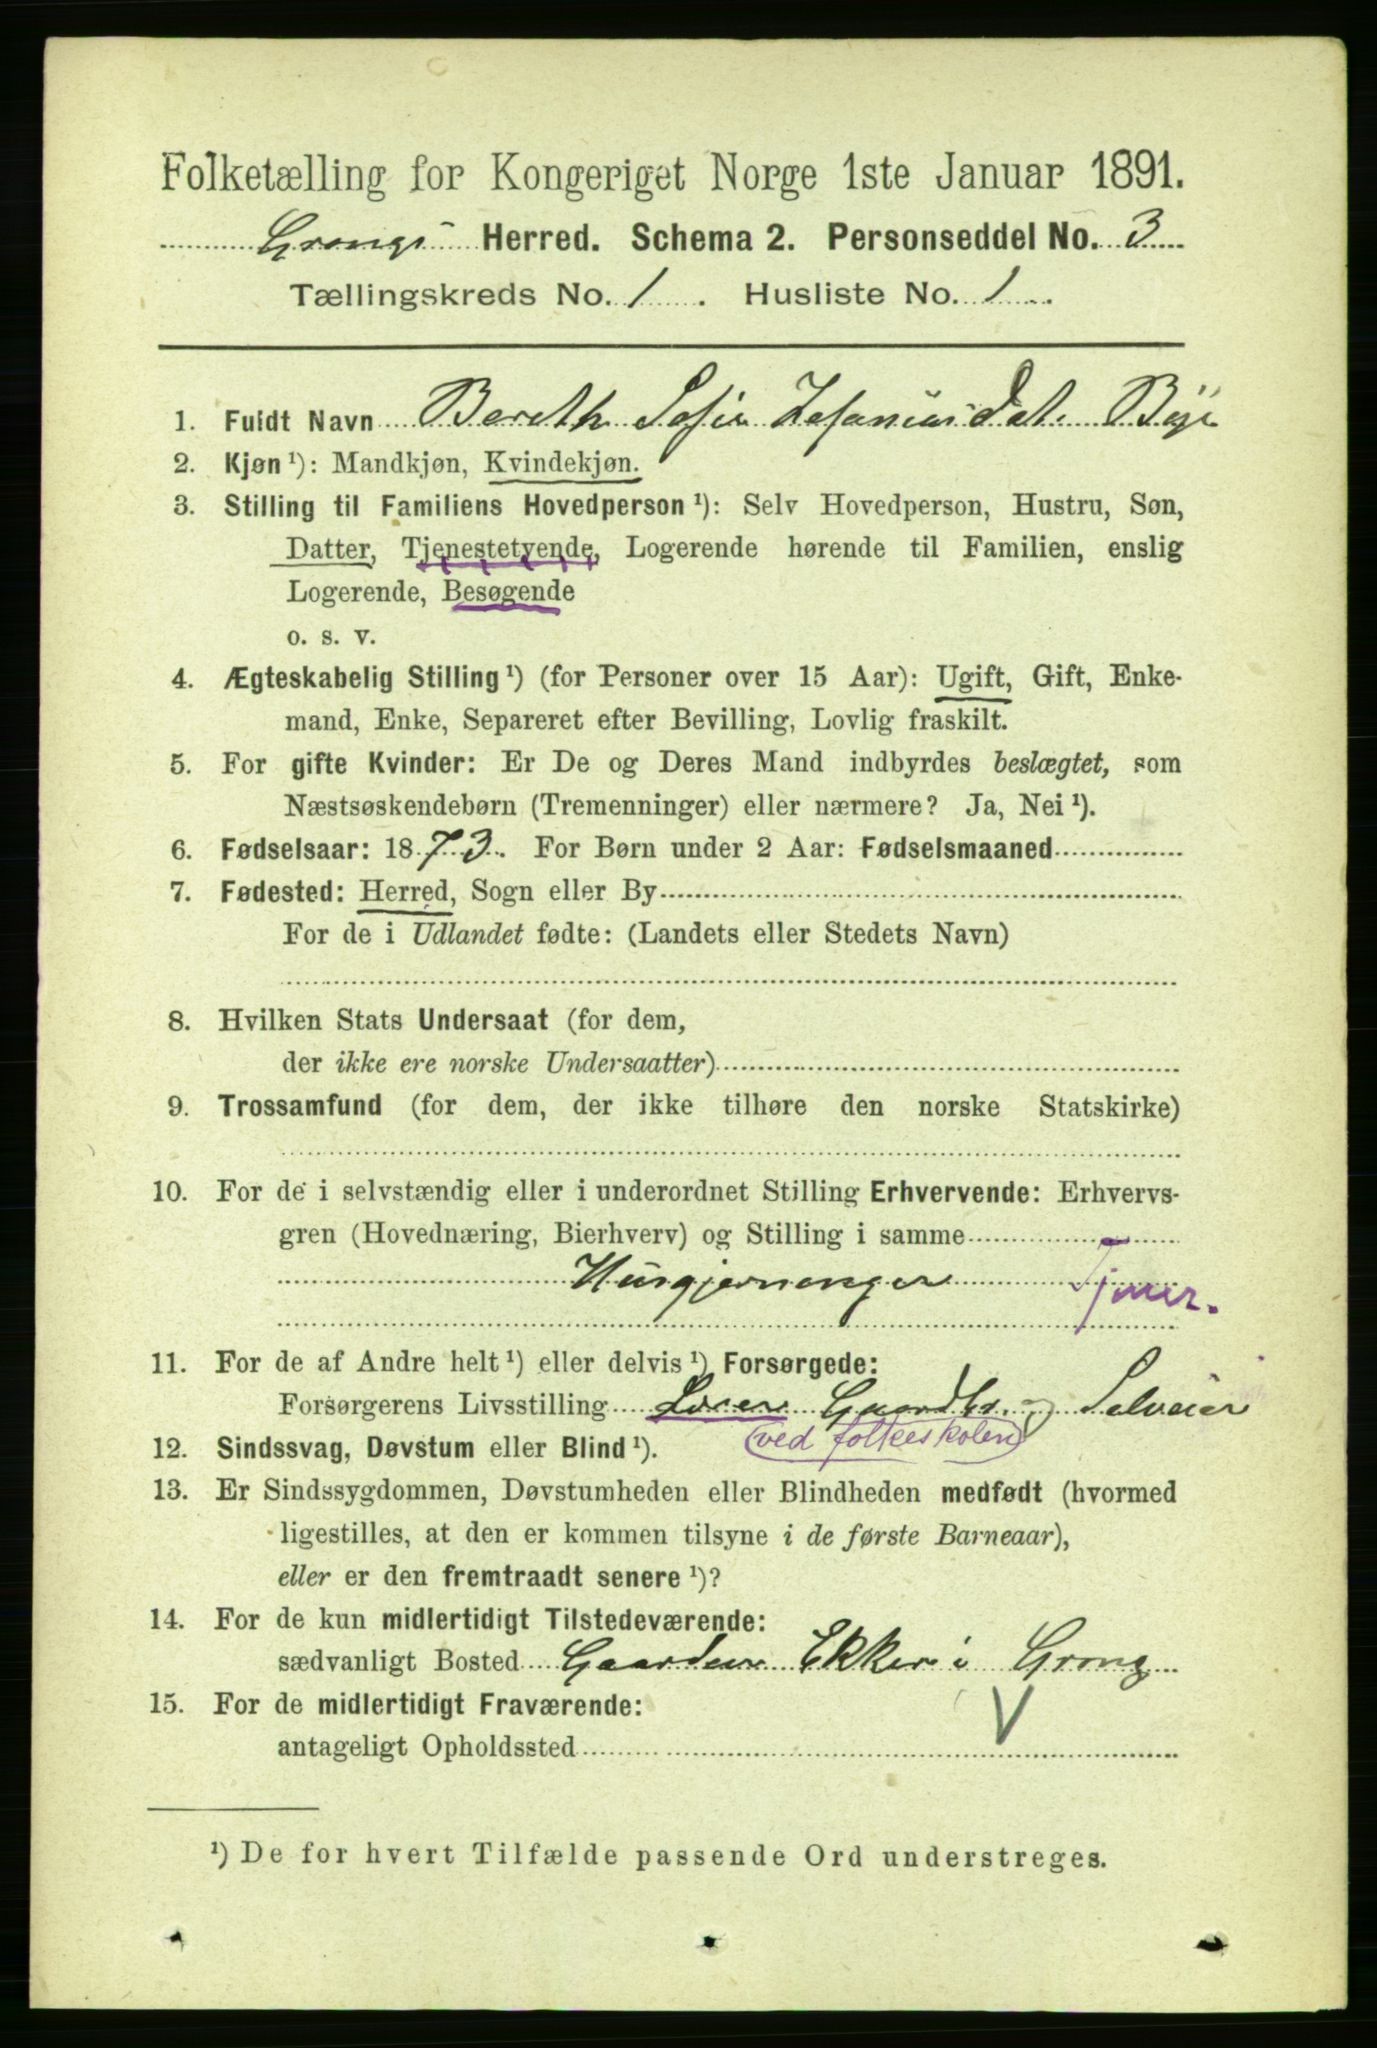 Folketælling for Kongeriget Norge 1ste Januar 1891.
Grongs Herred. Schema 2. Personseddel No. 3
Tællingskreds No. 1. Husliste No. 1.
1. Fuldt Navn Bereth Sofie Zefaniasdat. Bye
2. Kjøn ¹): Mandkjøn, Kvindekjøn.
3. Stilling til Familiens Hovedperson ¹): Selv Hovedperson, Hustru, Søn,
Datter, Tjenestetyende, Logerende hørende til Familien, enslig
Logerende, Besøgende
o. s. v.
4. Ægteskabelig Stilling ¹) (for Personer over 15 Aar): Ugift, Gift, Enke-
mand, Enke, Separeret efter Bevilling, Lovlig fraskilt.
5. For gifte Kvinder: Er De og Deres Mand indbyrdes beslægtet, som
Næstsøskendebørn (Tremenninger) eller nærmere? Ja, Nei ¹).
6. Fødselsaar: 1873. For Børn under 2 Aar: Fødselsmaaned
7. Fødested: Herred, Sogn eller By
For de i Udlandet fødte: (Landets eller Stedets Navn)
8. Hvilken Stats Undersaat (for dem,
der ikke ere norske Undersaatter)
9. Trossamfund (for dem, der ikke tilhøre den norske Statskirke)
10. For de i selvstændig eller i underordnet Stilling Erhvervende: Erhvervs-
gren (Hovednæring, Bierhverv) og Stilling i samme
Husgjerninger
11. For de af Andre helt ¹) eller delvis ¹) Forsørgede:
Forsørgerens Livsstilling Lærer Gaardbr. og Selveier
12. Sindssvag, Døvstum eller Blind ¹). (ved folkeskolen)
13. Er Sindssygdommen, Døvstumheden eller Blindheden medfødt (hvormed
ligestilles, at den er kommen tilsyne i de første Barneaar),
eller er den fremtraadt senere ¹)?
14. For de kun midlertidigt Tilstedeværende:
sædvanligt Bosted Gaarden Ekker i Grong
15. For de midlertidigt Fraværende:
antageligt Opholdssted
¹) De for hvert Tilfælde passende Ord understreges.